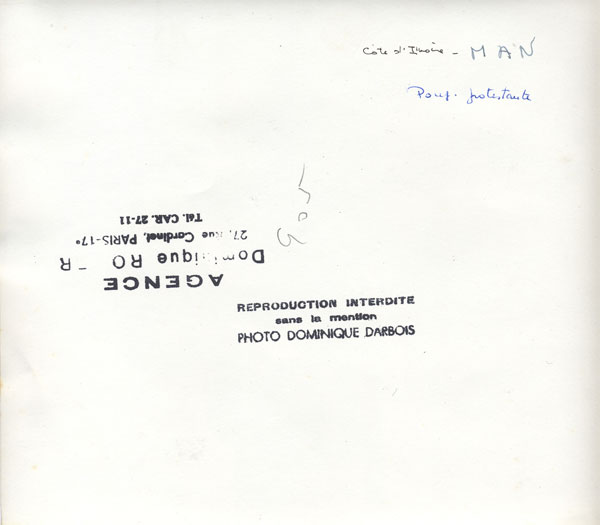 Côte d'Ivoire - MAN
protestante
Tél. CAR. 27-11
27, Rue Cardinet, PARIS-17e
Dominique
AGENCE
REPRODUCTION INTERDITE
sans la mention
PHOTO DOMINIQUE DARBOIS